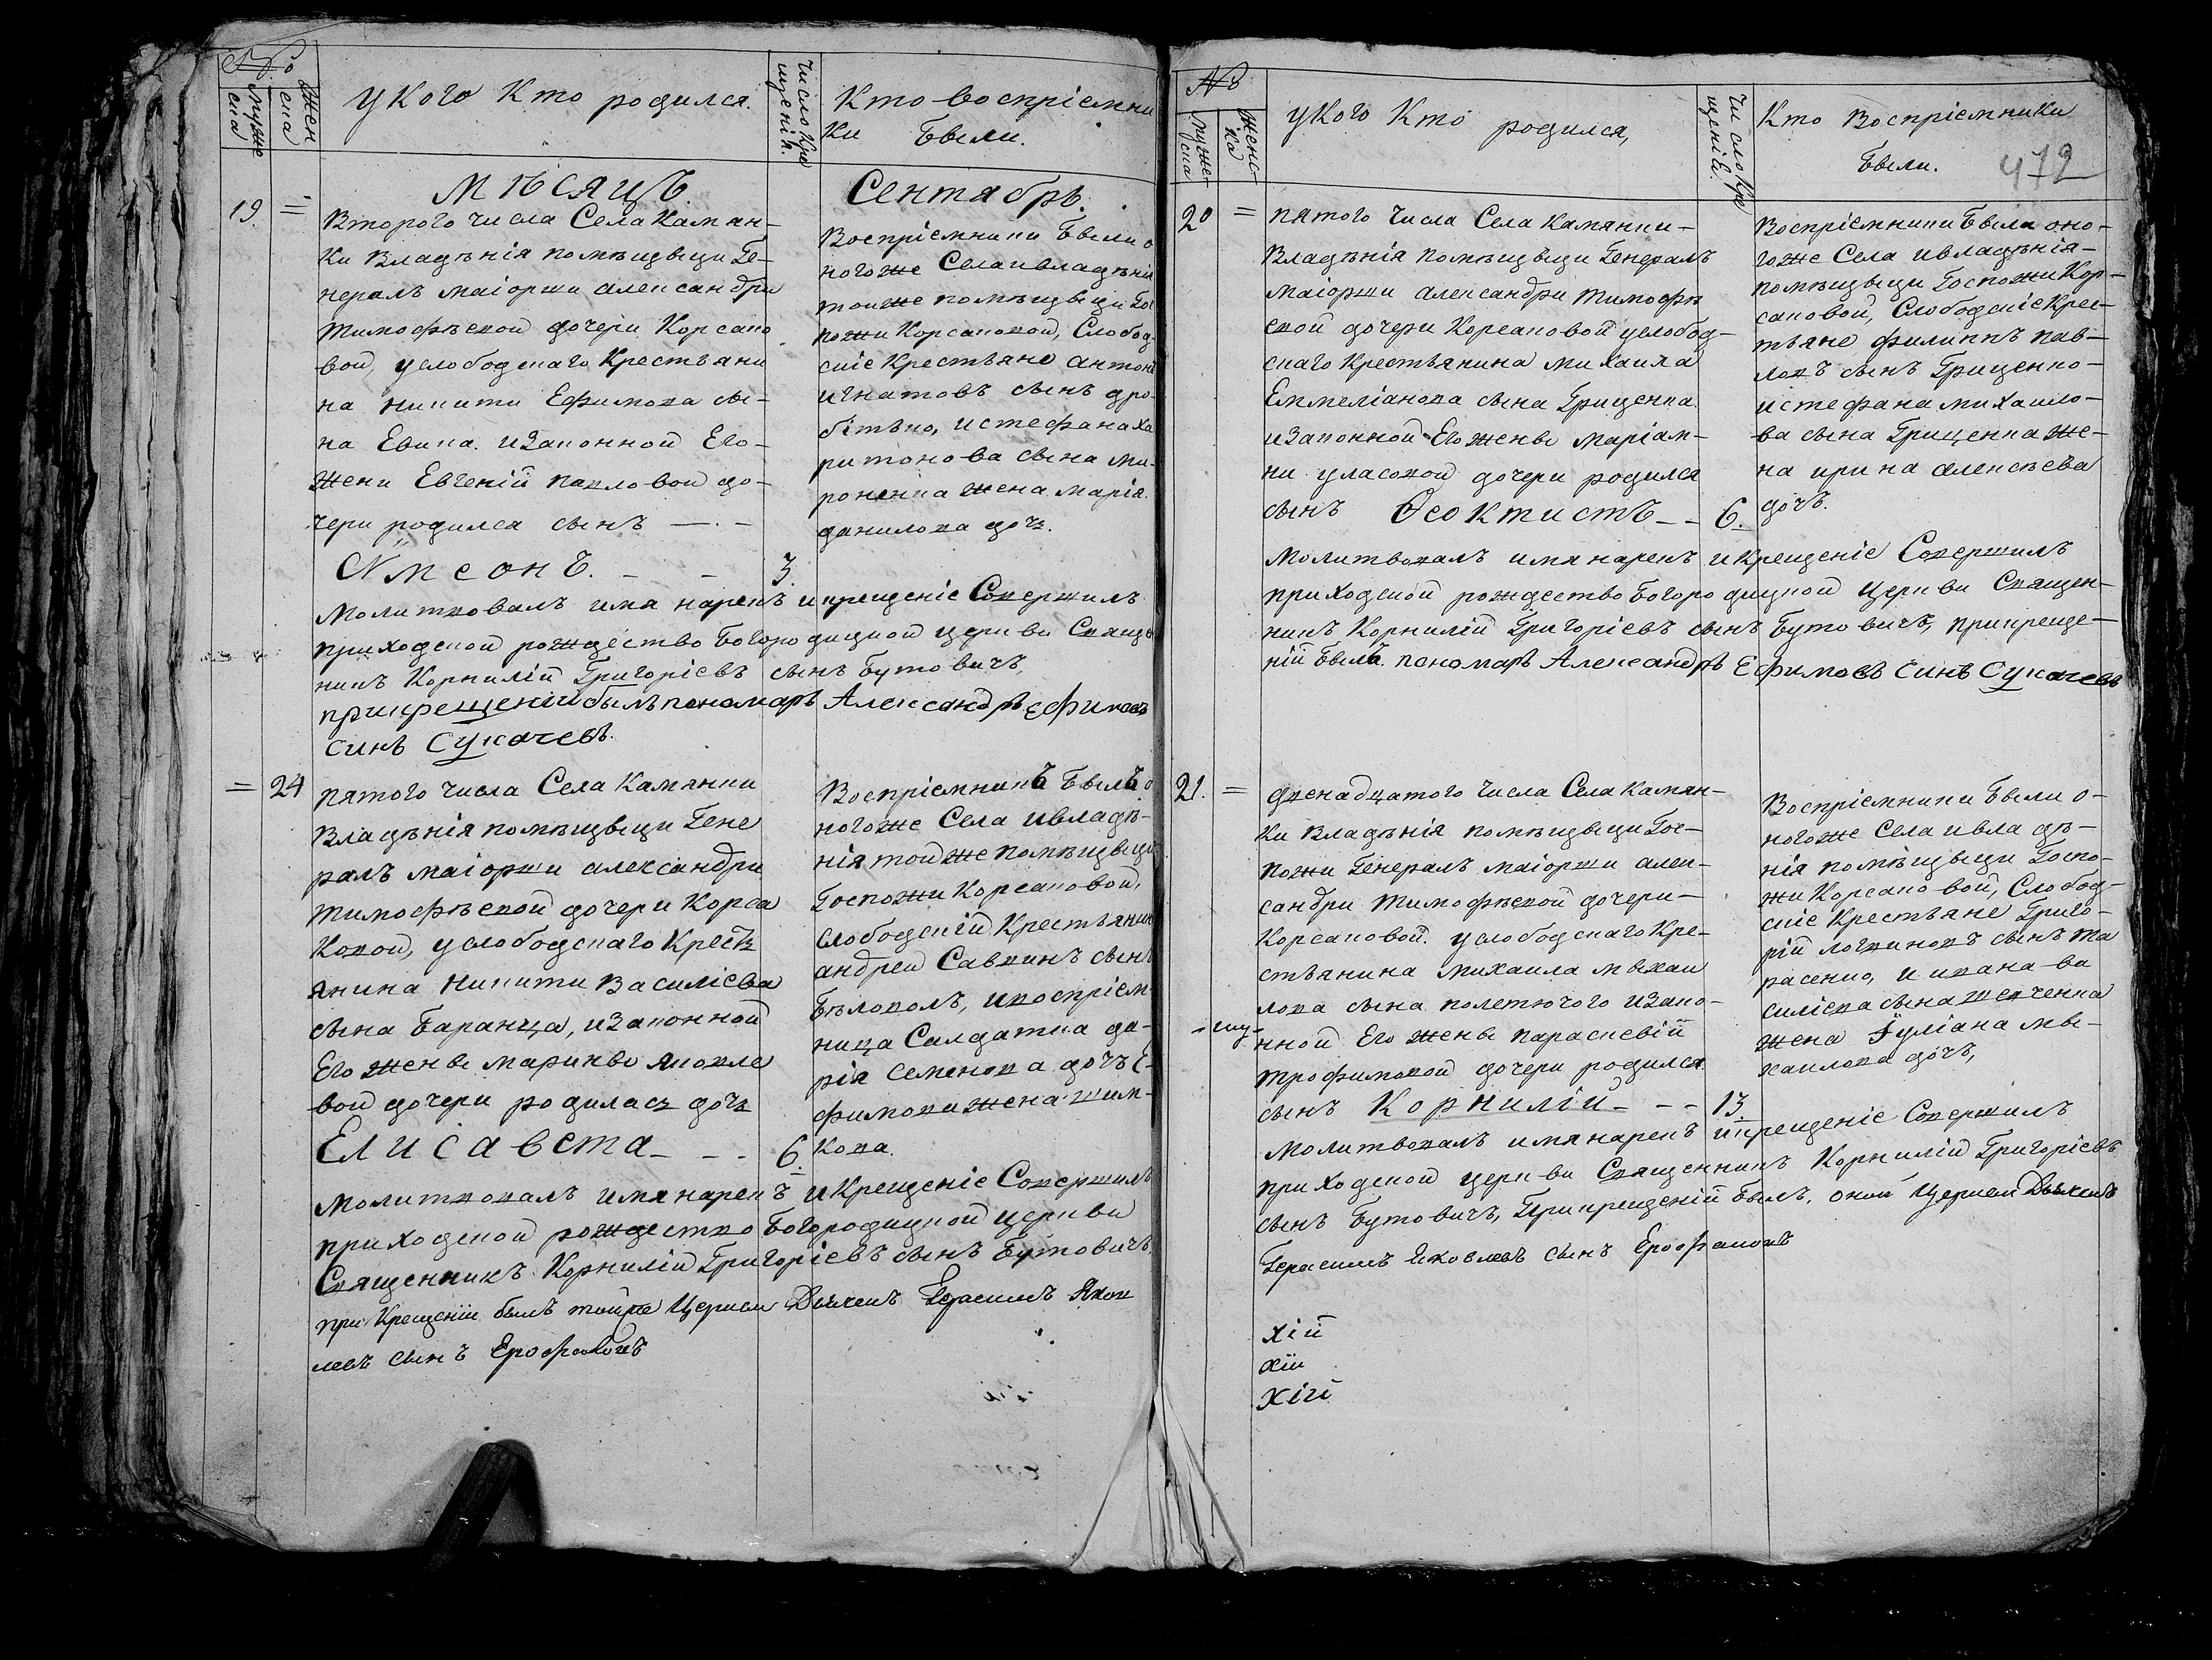 №
Мужеска
Женска
У кого кто родился.
Число крещенія.
Кто воспріемни
ки были.
Мѣсяцъ
Сентябрь.
19. =
Второго числа Села Камян-
ки Владѣнія помѣщыци Ге-
нералъ маіорши александри
тимофѣевой дочери Корсако
вой, услободскаго Крестьяни
на никити Ефимова сы-
на Евика. изаконной Его-
жени Евгеній павловой до-
чери родился сынъ — . —
Симеонъ. - - 3.
Воспріемники были о
ногоже Села ивладѣнія
тоиже помѣщыци Гос
пожи Корсаковой, Слобод-
скіе Крестьяне антонъ
игнатовъ сынъ дро-
бітько, истефана ха
ритонова сына ми-
роненка жена марія
данилова доч.
Молитвовалъ имя нарекъ икрещеніе Совершилъ
приходской рождество Богородицкой церкви Свяще
никъ Корнилій Григоріевъ сынъ Бутовичъ,
прикрещеніи былъ пономарь Александръ Ефимовъ
синъ Сукачевъ.
= 24
пятого числа Села Камянки
Владѣнія помѣщыци Гене
ралъ маіорши александри
тимофѣевой дочери Корса
ковой, услободскаго Крестъ
янина никити Василіева
сына Баранца, изаконной
Его жены маринвы яковле
вой дочери родилась дочь
Елисавета - - - 6.
Воспріемникъ былъ о
ногоже Села ивладѣ-
нія тойже помѣщыци
Госпожи Корсаковой,
слободскій Крестьянин
андрей Саввинъ сынъ
Бѣловолъ, ивоспріем-
ница Салдатка да-
рія семенова дочъ е-
фимова жена шим-
кова.
Молитвовалъ имянарекъ икрещеніе Совершилъ
приходской рождество Богородицкой церкви
Священникъ Корнилій Григоріевъ сынъ Бутовичъ,
при Крещеніи былъ тойже Церкви Дьячекъ Герасимъ Яков
левъ сынъ Ерофаловъ
№
мужеска
женска
У кого кто родился,
Число крещеній.
Кто воспріемники
были.
472
20 =
пятого числа Села Камянки-
Владѣнія помѣщыци Генералъ
маіорши александри тимофѣ
евой дочери Корсаковой услобод-
скаго Крестьянина михаила
Еммеліанова сына Гриценка
изаконной Его жены маріам-
ни уласовой дочери родился
сынъ Ѳеоктистъ - - 6.
Воспріемники были оно-
гоже Села ивладѣнія-
помѣщыци Госпожи Кор-
саковой, Слободскіе Крес-
тьяне филиппъ пав-
ловъ сынъ Гриценко-
истефана михаило-
ва сына Гриценка же-
на ирина алексѣева
дочъ.
Молитвовалъ имя нарекъ икрещеніе Совершилъ
приходской рождество Богородицкой церкви Священ-
никъ Корнилій Григоріевъ сынъ Бутовичъ, прикреще-
ній былъ. пономарь Александръ Ефимовъ синъ Сукачевъ
21. =
двенадцатого числа Села Камян-
ки Владѣнія помѣщыци Гос-
пожи Генералъ маіорши алек-
сандри тимофѣевой дочери-
Корсаковой. услободскаго Кре-
стьянина михаила михаи
лова сына полетючого изако-
нной Его жены параскевій
трофимовой дочери родился
сынъ Корнилій - - - 13.
Воспріемники были о-
ногоже Села ивладѣ-
нія помѣщыци Госпо-
жи Корсаковой, Слобод-
скіе Крестьяне Григо-
рій логвиновъ сынъ та
расенко, и ивана ва
силіева сына шевченка
жена Іуліана ми-
хаилова дочъ,
Молитвовалъ имянарекъ икрещеніе Совершилъ
приходской церкви Священникъ Корнилій Григоріевъ
сынъ Бутовичъ, Прикрещеній былъ. оной Церкви Дьячекъ
Герасимъ Яковлевъ сынъ Ерофаловъ
хій
хіи
хіи